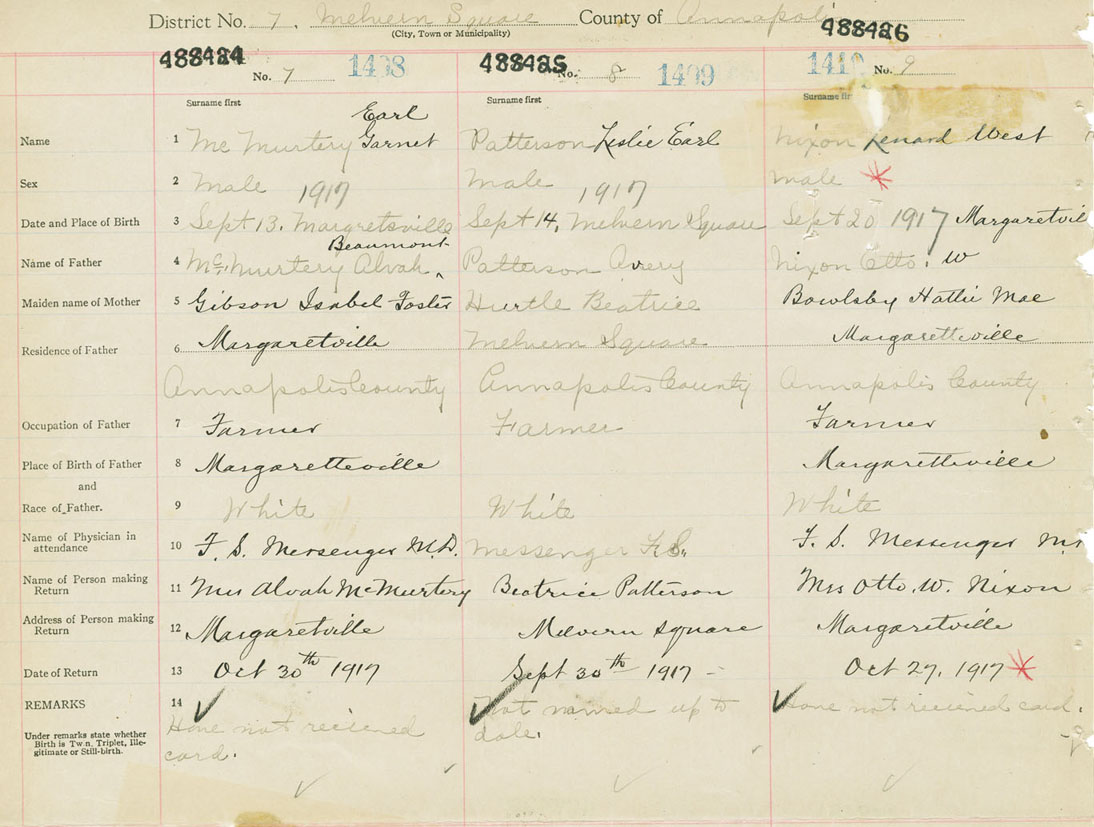 District No. 7, Melvern Square County of Annapolis
(City, Town or Municipality)
488424 488425 488426
No. 7 1408 No. 8 1409 1410 No. 9
Surname first Surname first Surname fir
Earl
Name 1 Mc Murtery Garnet Patterson Leslie Earl Nixon Lenard West
Sex 2 Male male male
1917 1917
Date and Place of Birth 3 Sept 13. Margretsville Sept 14, Melvern Square Sept 20 1917 Margaretvil
Beaumont
Name of Father 4 McMurtery Alvah Patterson Avery Nixon Otto. W
Maiden name of Mother 5 Gibson Isabel Foster Hurtle Beatrice Bowlsby Hattie Mae
Residence of Father 6 Margaretville Melvern Square Margaretteville
Annapolis County Annapolis County Annapolis County
Occupation of Father 7 Farmer Farmer Farmer
Place of Birth of Father 8 Margaretteville Margaretteville
and
Race of Father. 9 White White White
Name of Physician in
attendance 10 F. S. Messenger M.D. Messenger F. S. F. S. Messenger
Name of Person making
Return 11 Mrs Alvah McMurtery Beatrice Patterson Mrs Otto. W. Nixon
Address of Person making
Return 12 Margaretville Melvern Square Margaretville
Date of Return 13 Oct 30th 1917 Sept 30th 1917 - Oct 27, 1917
REMARKS 14 Have not recieved Not named up to Have not recieved card.
card. date.
Under remarks state whether
Birth is Tw n, Triplet, Ille-
gitimate or Still-birth.